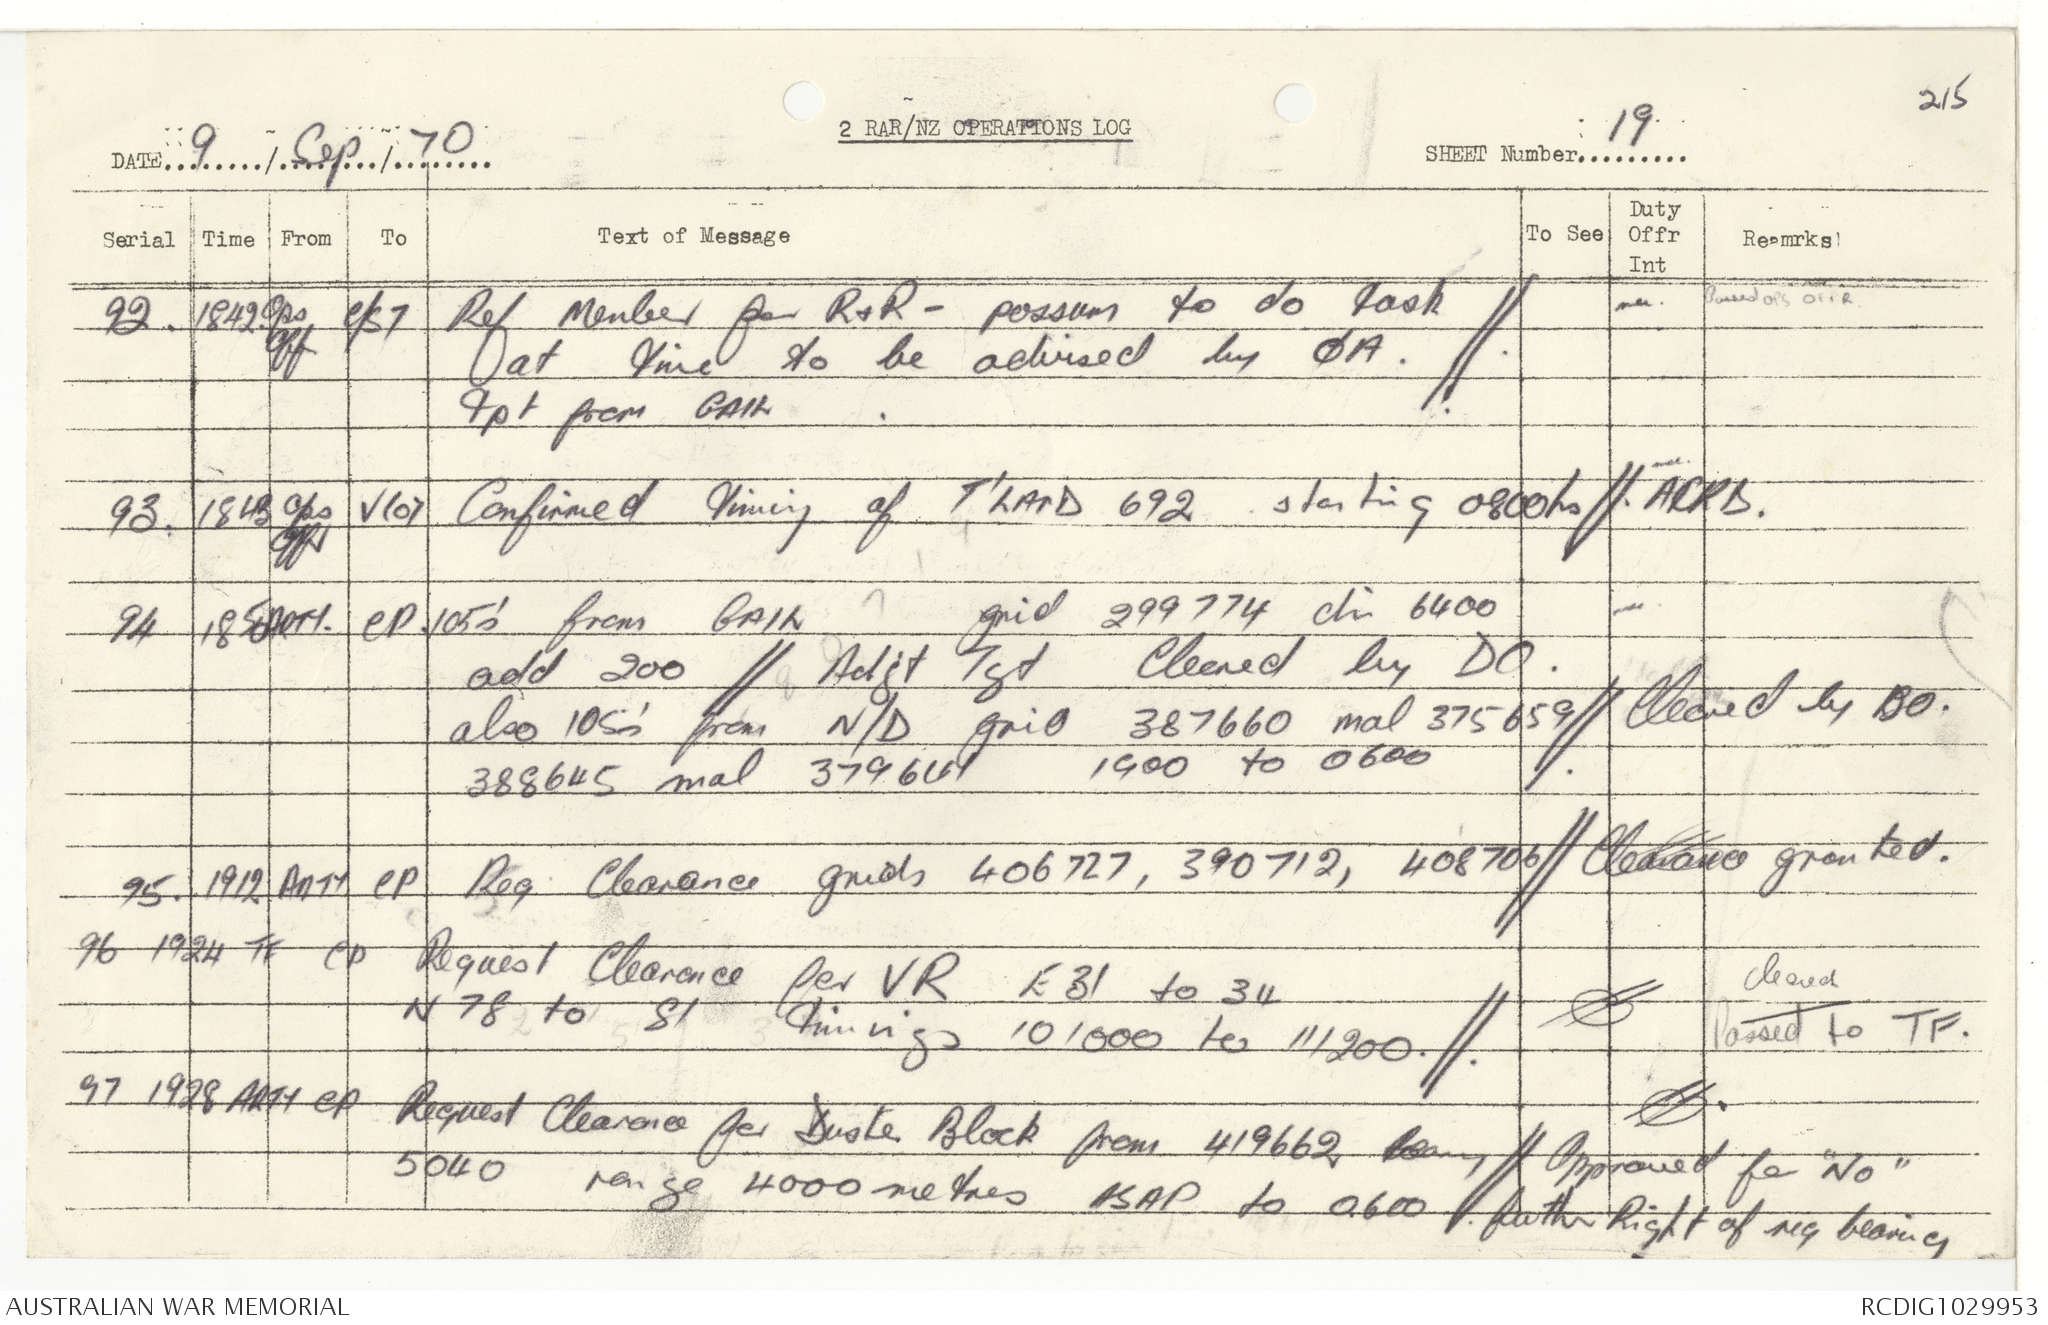 215
2 RAR/NZ OPERATIONS LOG
DATE 9 / Sep / 70
SHEET Number 19
Serial Time From To Text of Message To See Duty Offr Int Remrks
92. 1842 Ops Off Ref Member for R&R - possum to do task Passed OPS OFFR.
at time to be advised by OA. //
Tpt from GAIL
93. 1843 Ops Offr Confirmed timing of 692 starting 0800hs //
94 1850 ARTY. CP. 105's from GAIL grid 299774 dir 6400
add 200 // Adjt Tgt Cleared by DO.
also 105's from N/D grid 387660 mal 375659 // Cleared by BO.
388645 mal 379641 1900 to 0600
95. 1912 ARTY CP Req Clearance grids 406727, 390712, 408706 // Clearance granted.
96 1924 TF CP Request Clearance for VR E 31 to 34 Cleared
N 78 to 81 timings 101000 to 111200. // Passed to TF.
97 1928 ARTY CP Request Clearance for Duster Block from 419662 // Approved for "No"
5040 range 4000 metres ASAP to 0600 further Right of req bearing
AUSTRALIAN WAR MEMORIAL
RCDIG1029953